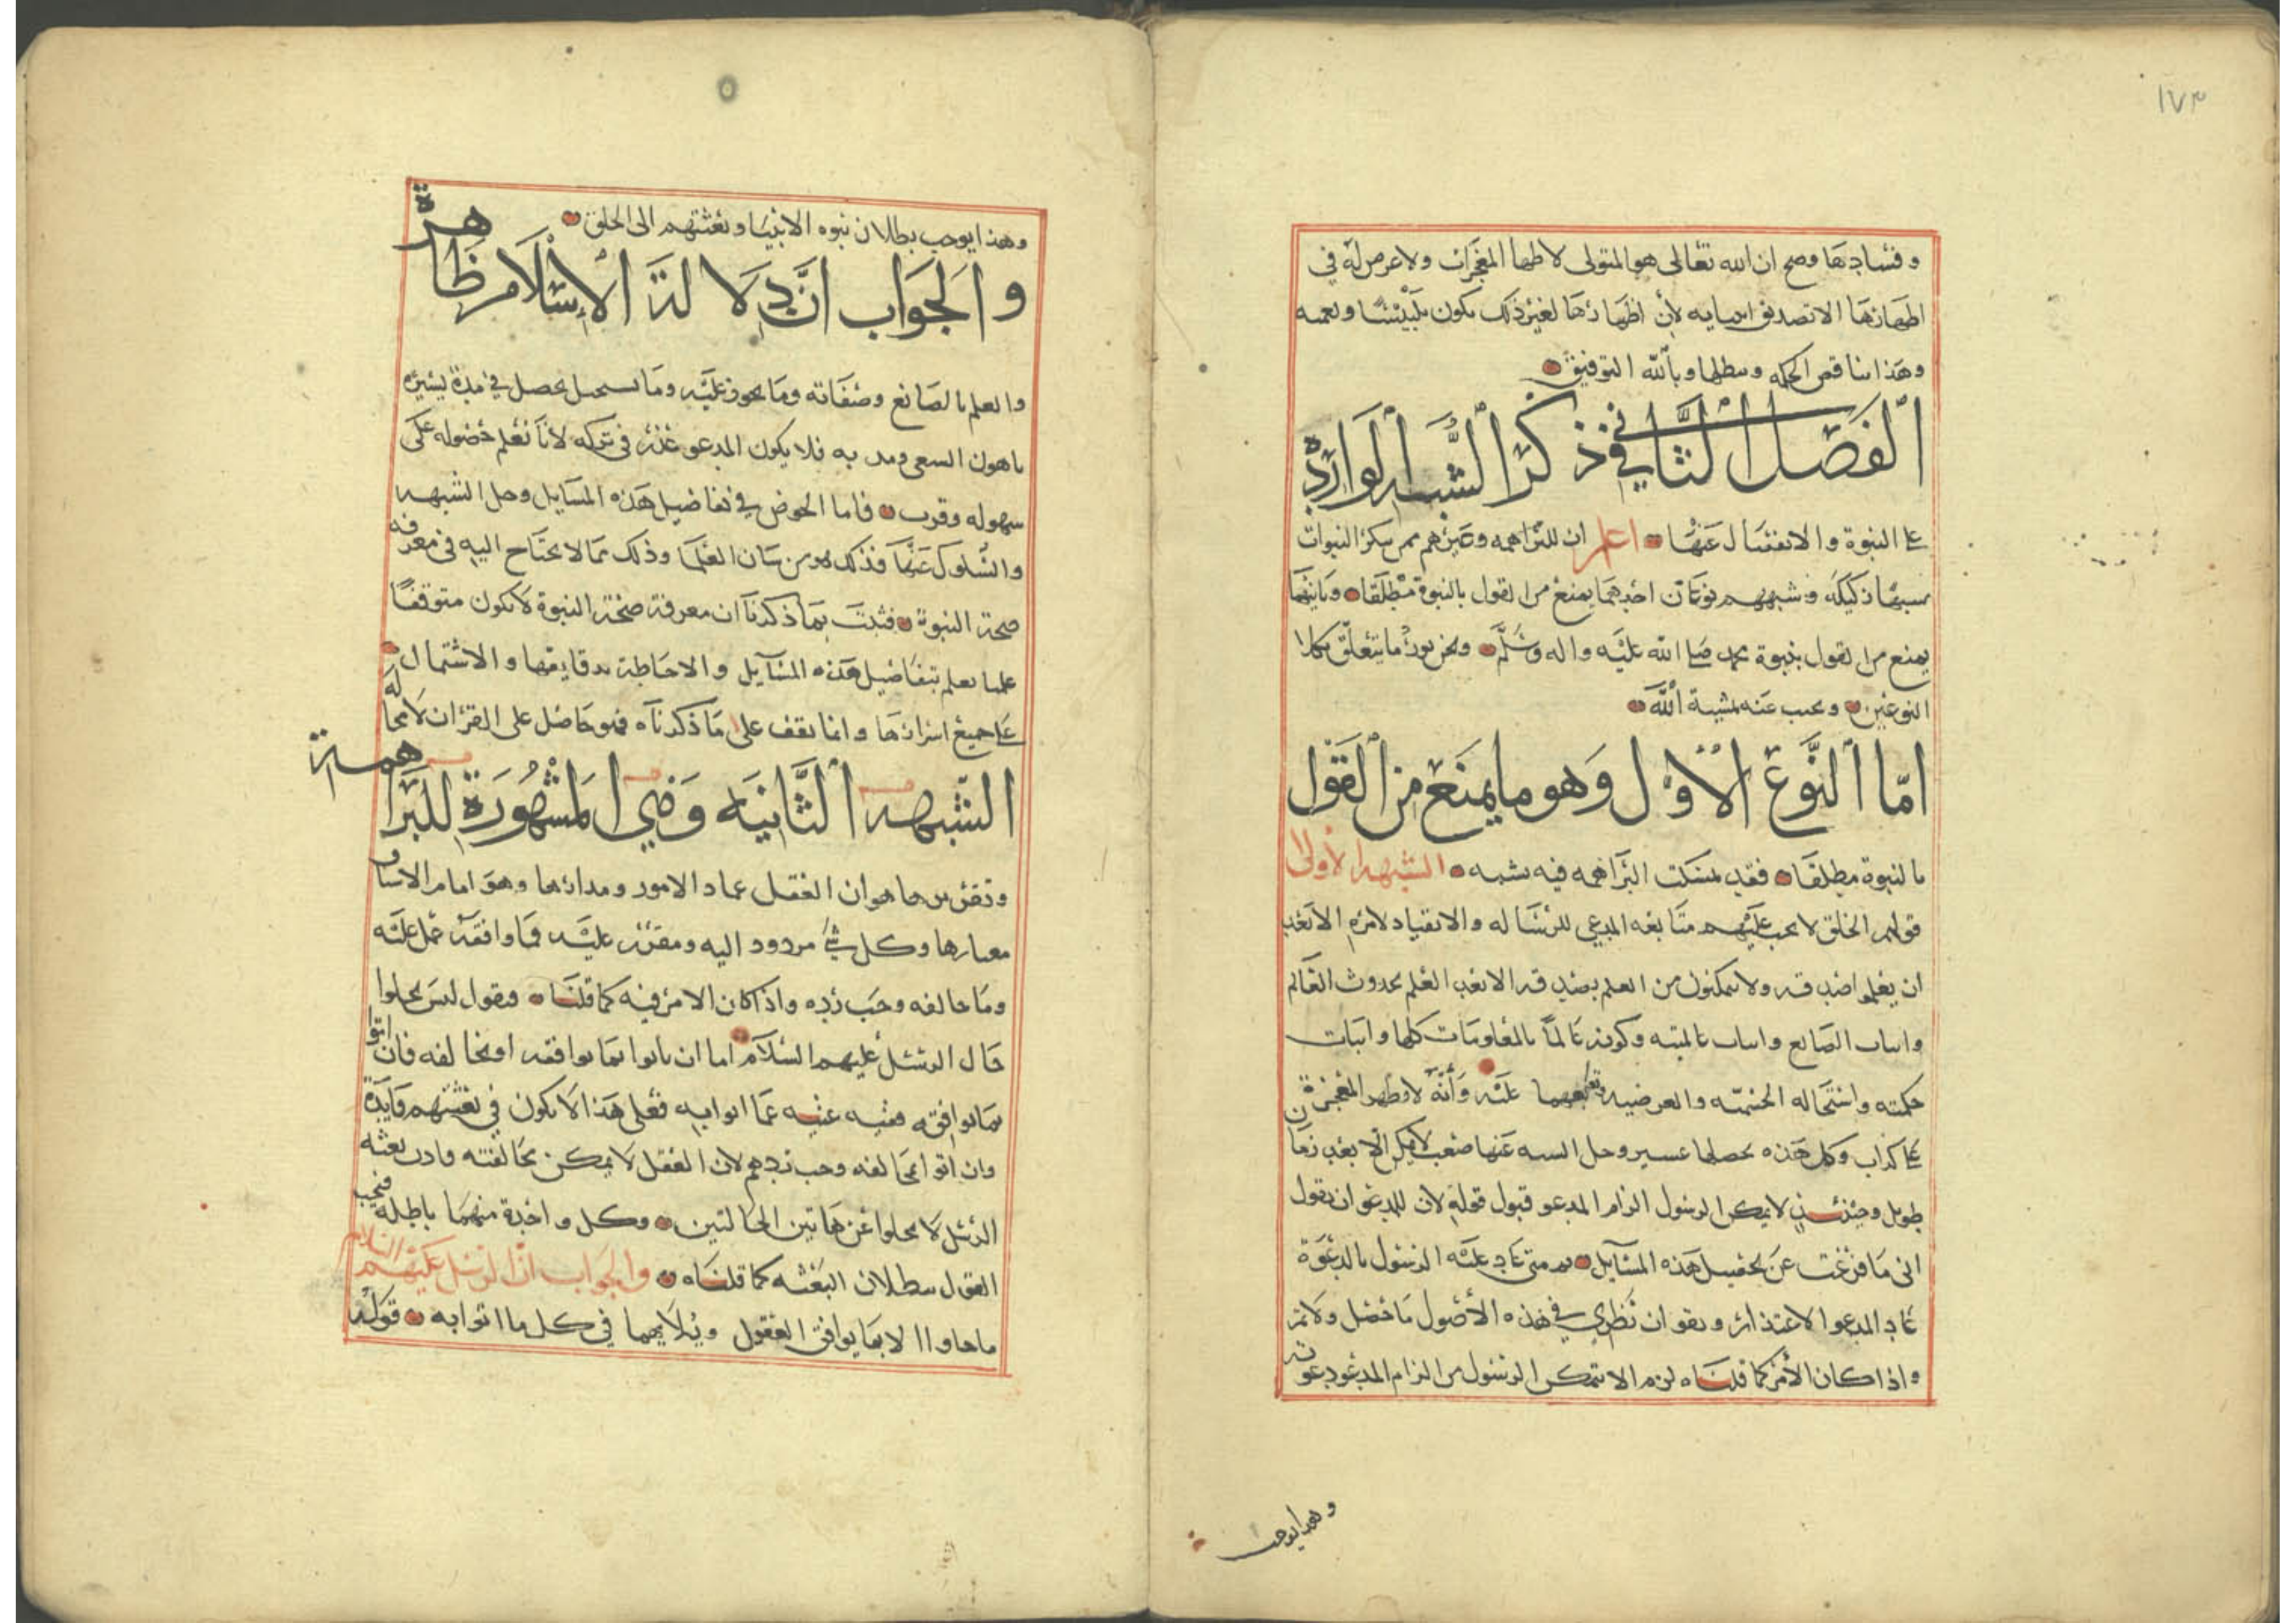 ١٧٣
وفسادها وصح ان الله تعالى هو المتولى لاظهار المعجزات ولا غرض له في
اظهارها الا تصديق انبيايه لان اظهارها لغير ذلك يكون تلبيسًا وتعميه
وهذا يناقض الحكمه ويبطلها وبالله التوفيق
الفصل الثاني في ذكر الشبه الوارده
على النبوة والانفصال عنها اعلم ان للبراهمه وغيرهم ممن ينكر النبوات
شبهًا ركيكه وشبههم نوعان احدهما يمنع من القول بالنبوة مطلقا وثانيهما
يمنع من القول بنبوة محمد صلى الله عليه واله وسلم ونحن نورد ما يتعلق بكلا
النوعين ونجيب عنه بمشية الله
امّا النّوع الأوّل وهو ما يمنع من القول
بالنبوة مطلقا فقد تمسكت البراهمه فيه بشبه الشبهه الأولى
قولهم الخلق لا يجب عليهم متابعه المدعي للرساله والانقياد لامره الا بعد
ان يعلموا صدقه ولا يتمكنون من العلم بصدقه الا بعد العلم بحدوث العالم
واثبات الصانع واثبات عالميته وكونه عالمًا بالمعلومات كلها واثبات
حكمته واستحاله الجسميّه والعرضيه عليه وأنه لا يظهر المعجزة
على كذاب وكل هذه تحصلها عسير وحل الشبه عنها صعب لا يمكن الا بعد زمان
طويل وحينئذٍ لا يمكن الرسول الزام المدعو قبول قوله لان للمدعو ان يقول
انى ما فرغت عن تحصيل هذه المسآيل ثم متى عاد عليه الرسول بالدعوة
عاد المدعو الاعتذار ويقول ان نظري في هذه الأصول ما حصل ولا تم
واذا كان الأمر كما قلناه لزم الا يتمكن الرسول من الزام المدعو دعوته
وهذا يوجب
وهذا يوجب بطلان نبوه الانبيا وبعثتهم الى الخلق
والجواب انّ دلالة الإسلام ظاهرة
والعلم بالصانع وصفاته وما يجوز عليه وما يستحيل يحصل في مدة يسيره
باهون السعي فلا يكون المدعو عذر في تركه لأنا نعلم حصوله على
سهوله وقرب فاما الخوض في تفاضيل هذه المسايل وحل الشبهه
والسلوك عنها فذلك هو من شان العلما وذلك مما لا يحتاج اليه في معرفه
صحة النبوة فثبت بما ذكرنا ان معرفة صحة النبوة لا يكون متوقفًا
على العلم بتفاضيل هذه المسآيل والاحاطة بدقايقها والاشتمال
على جميع اسرارها وانما يقف على ما ذكرناه فهو حاصل على القران لا محاله
الشبهه الثّانيه وهي المشهورة للبراهمة
وتقريرها هو ان العقل عماد الامور ومدارها وهو امام الاشيا و
معيارها وكل شيء مردود اليه ومقرر عليه فما وافقه عمل عليه
وما خالفه وجب رده واذا كان الامر فيه كما قلنا فنقول ليس يخلوا
حال الرسل عليهم السلام اما ان ياتوا بما يوافقه او يخالفه فان اتوا
بما يوافقه ففيه غنيه عما اتوا به فعلى هذا لا يكون في بعثتهم فايدة
وان اتوا بما يخالفه وجب ردهم لان العقل لا يمكن مخالفته واذن بعثه
الرسل لا يخلوا عن هاتين الحالتين وكل واحدة منهما باطله فيجب
القول ببطلان البعثه كما قلناه والجواب انّ الرسل عليهم السلام
ما جاوا الا بما يوافق العقول ويلايمها في كل ما اتوا به قوله